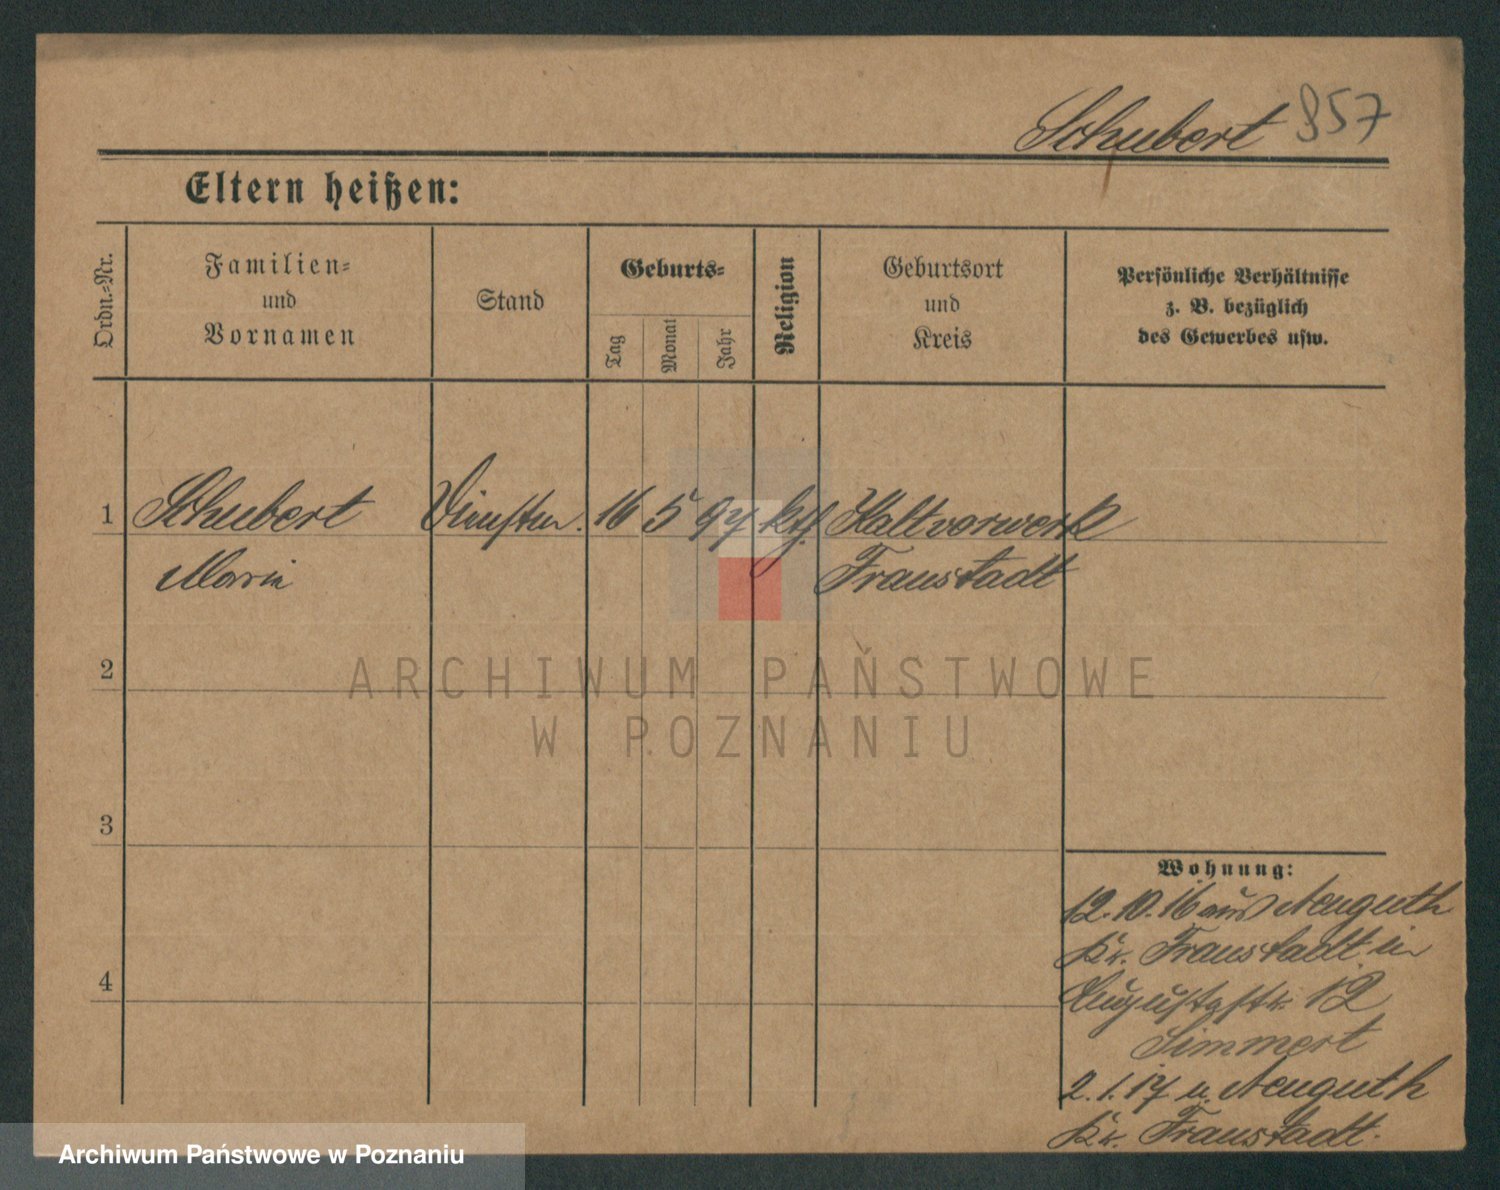 Schubert 857
Eltern heißen:
Ordn.-Nr.
Familien-
und
Vornamen
Stand
Geburts-
Tag
Monat
Jahr
Religion
Geburtsort
und
Kreis
Persönliche Verhältnisse
z. B. bezüglich
des Gewerbes usw.
1 Schubert 16 5 97 kth Kaltvorwerk
Marie Fraustadt
2
ARCHIWUM PAŃSTWOWE
W POZNANIU
3
Wohnung:
12.10.16 aus Neuguth
Kr. Fraustadt in
4
Augustastr. 12
Simmert
2.1.17 n. Neuguth
Kr. Fraustadt.
Archiwum Państwowe w Poznaniu